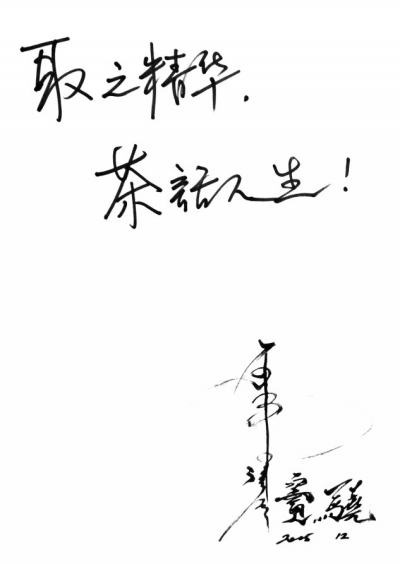 取之精华.
茶話人生!
2005 12